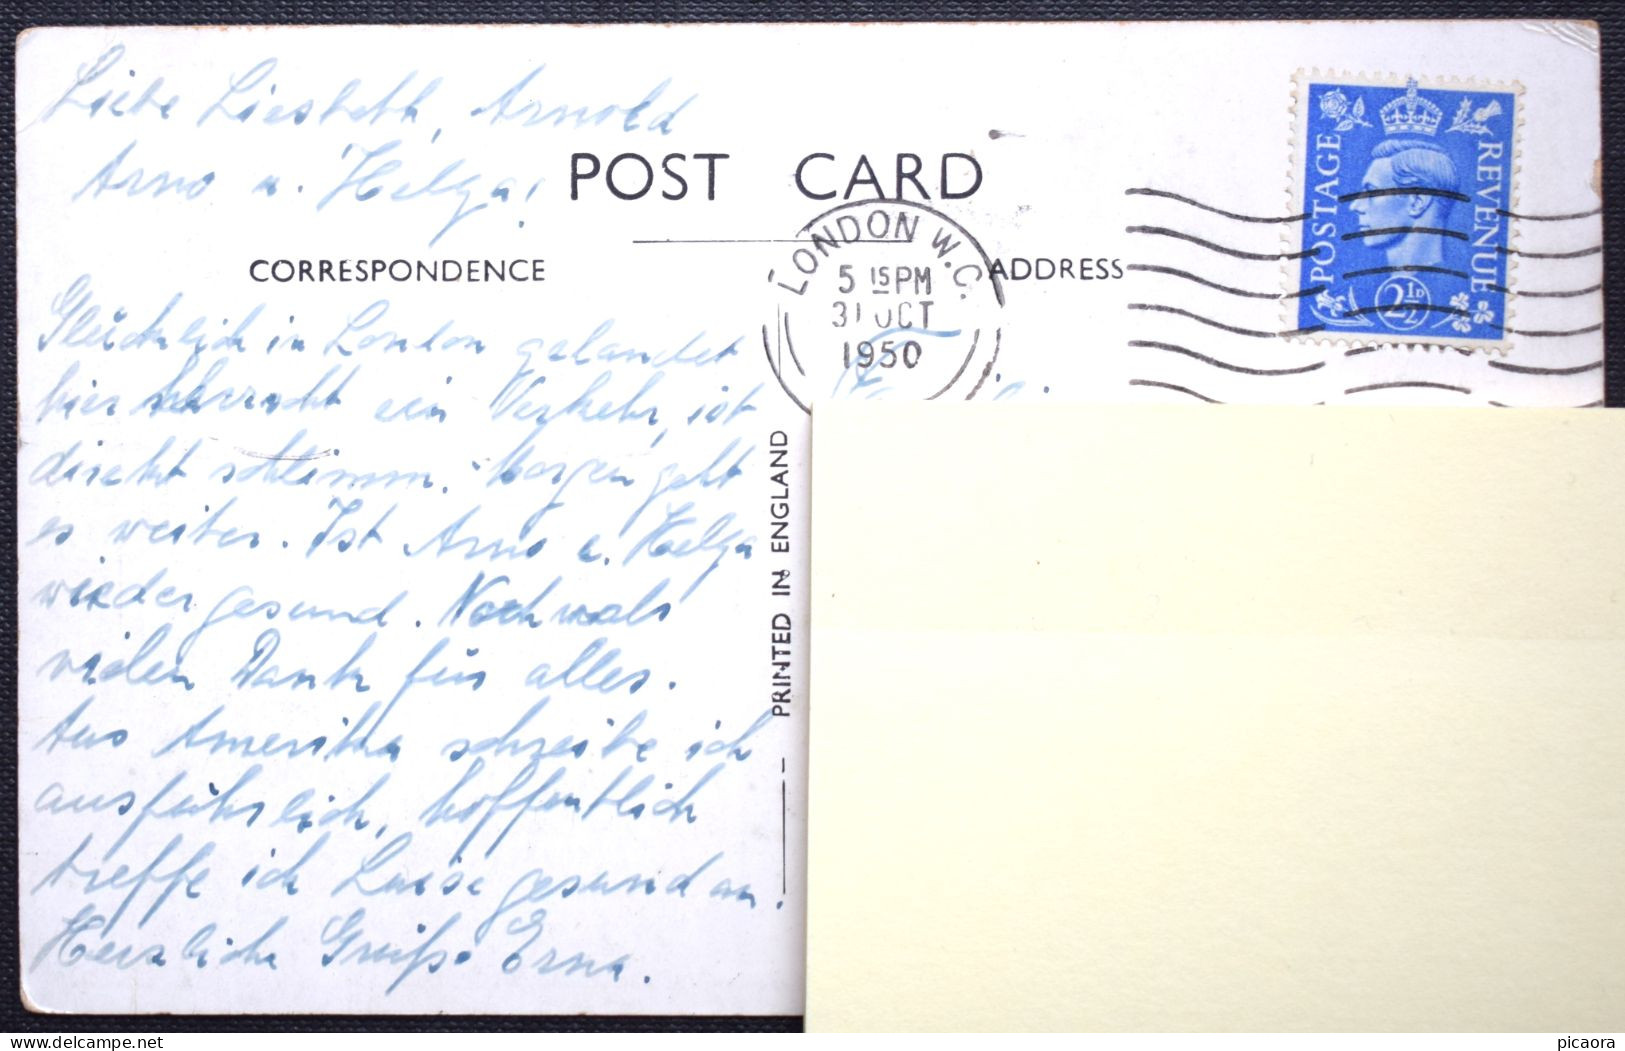 Liebe Liesbeth, Arnold
Arno u. Helga!
POST CARD
CORRESPONDENCE
ADDRESS
LONDON W.C.
5 15 PM
31 OCT
1950
POSTAGE
REVENUE
2½D
Glücklich in London gelandet
hier herrscht ein Verkehr, ist
direkt schlimm. Morgen geht
es weiter. Ist Arno u. Helga
wieder gesund. Nochmals
vielen Dank für alles.
Aus Amerika schreibe ich
ausführlich, hoffentlich
treffe ich Luise gesund an.
Herzliche Grüße Erna.
PRINTED IN ENGLAND
Delcampe.net
picaora